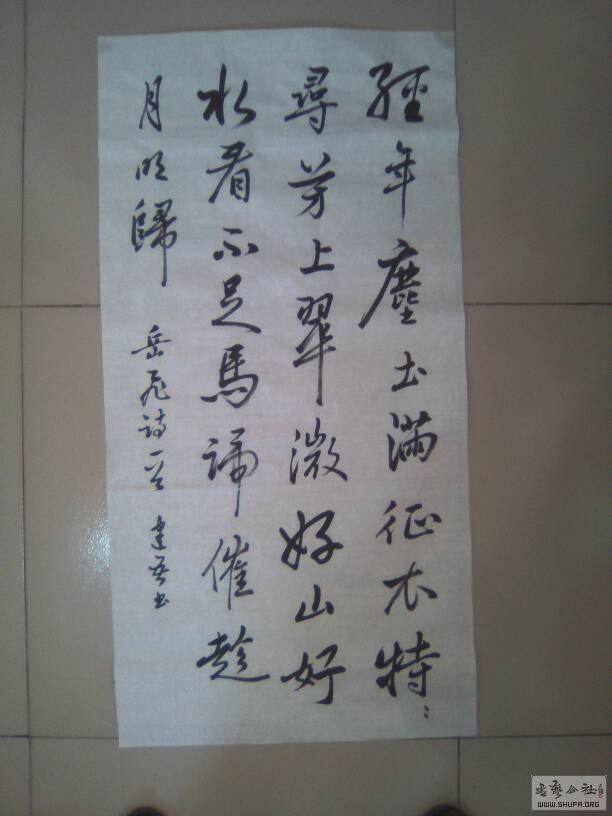 經年塵土滿征衣特〻
尋芳上翠微好山好
水看不足馬蹄催趁
月明歸 岳飛詩一首 建 書
書藝公社
WWW.SHUFA.ORG